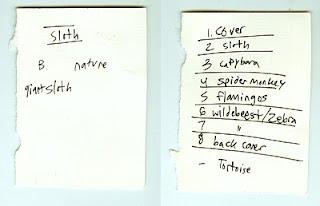 Sloth
B nature
giant sloth
1. Cover
2 sloth
3 capybara
4 spider monkey
5 flamingos
6 wildebeest/Zebra
7 "
8 back cover
- Tortoise